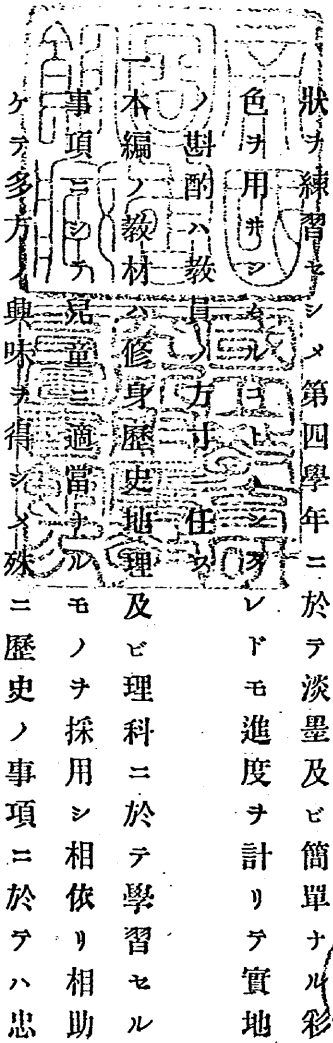 狀ヲ練習セシメ第四學年ニ於テ淡墨及ビ簡單ナル彩
色ヲ用井シムルコトヽシタレドモ進度ヲ計リテ實地
ノ斟酌ハ敎員ノ方寸ニ任ス
一本編ノ敎材ハ修身歷史地理及ビ理科ニ於テ學習セル
事項ニシテ兒童ニ適當ナルモノヲ採用シ相依リ相助
ケテ多方ノ興味ヲ得シメ殊ニ歷史ノ事項ニ於テハ忠